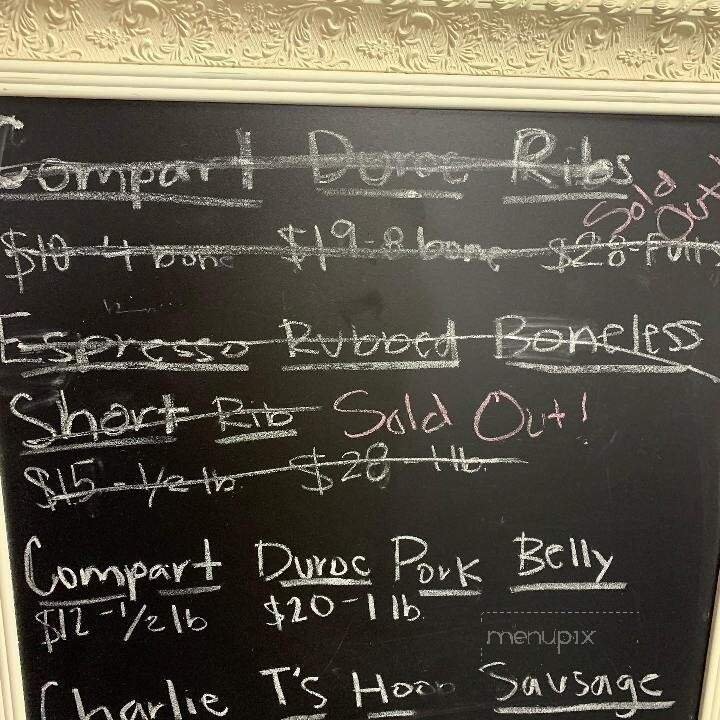 Compart Duroc Ribs
Sold Out!
$10-4 bone $19-8 bone $28-Full
Espresso Rubbed Boneless
Short Rib Sold Out!
$15-1/2 lb $28-1 lb
Compart Duroc Pork Belly
$12-1/2 lb $20-1 lb
menupix
Charlie T's Sausage